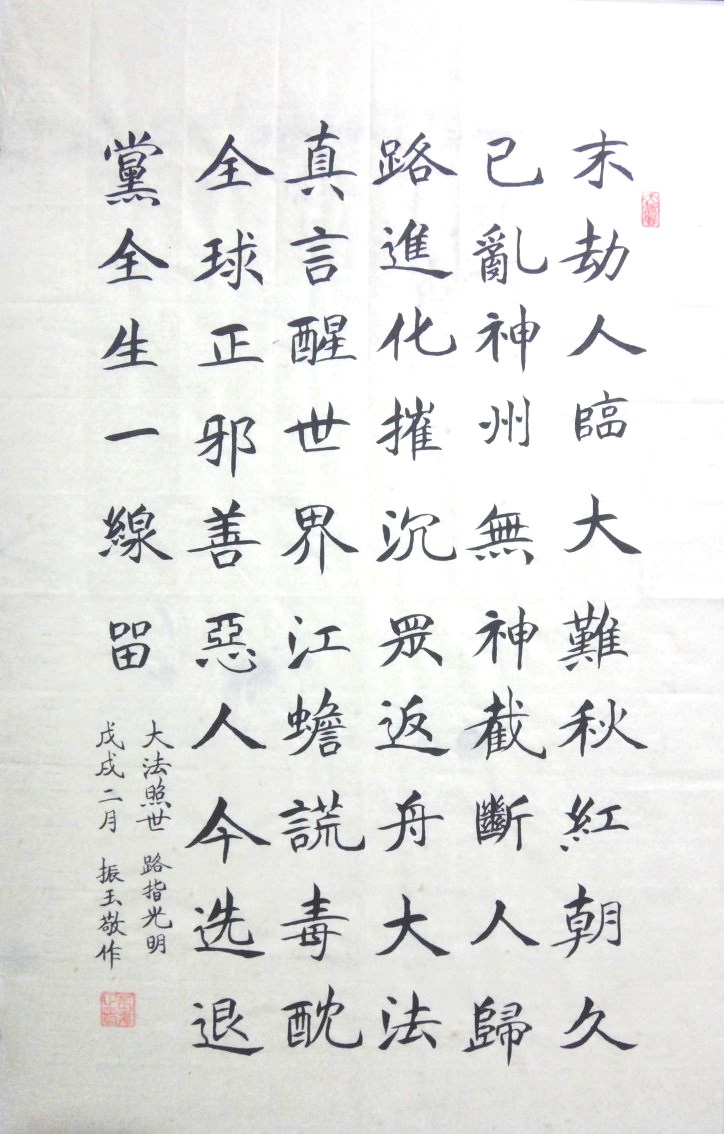 末劫人臨大難秋紅朝久
已亂神州無神截斷人歸
路進化摧沉眾返舟大法
真言醒世界江蟾謊毒酖
全球正邪善惡人今选退
黨全生一線留
大法照世 路指光明
戊戌二月 振玉敬作